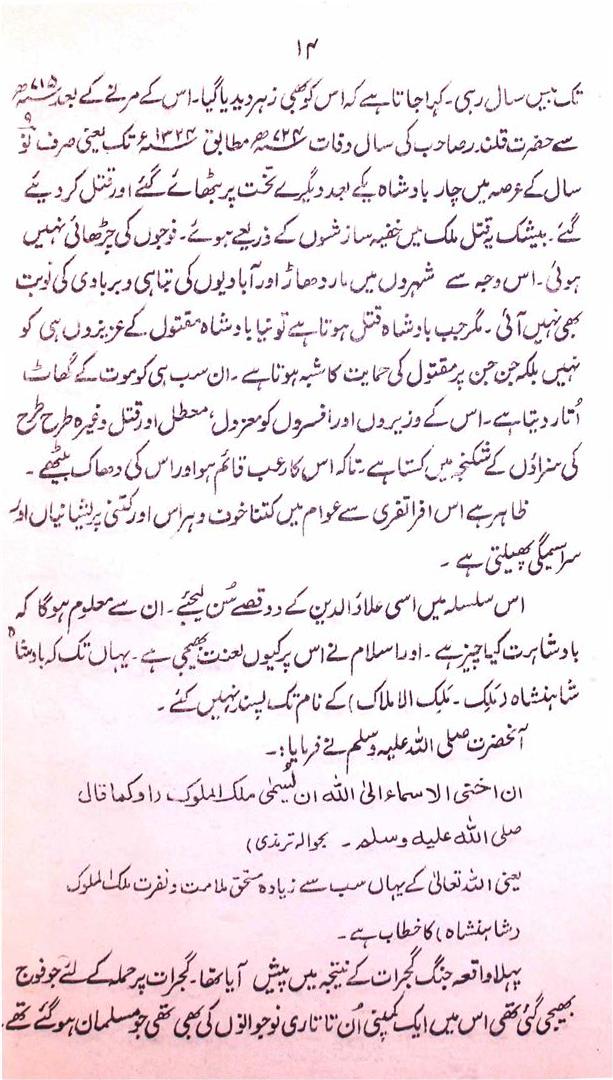 ۱۴
تک بیس سال رہی۔ کہا جاتا ہے کہ اس کو بھی زہر دیدیا گیا۔ اس کے مرنے کے بعد ۷۱۵ھ
سے حضرت قلندر صاحب کی سال وفات ۷۲۴ھ مطابق ۱۳۲۴ء تک یعنی صرف نو ۹
سال کے عرصہ میں چار بادشاہ یکے بعد دیگرے تخت پر بٹھائے گئے اور قتل کر دیئے
گئے۔ بیشک یہ قتل ملک میں خفیہ سازشوں کے ذریعے ہوئے۔ فوجوں کی چڑھائی نہیں
ہوئی۔ اس وجہ سے شہروں میں مار دھاڑ اور آبادیوں کی تباہی و بربادی کی نوبت
بھی نہیں آئی۔ مگر جب بادشاہ قتل ہوتا ہے تو نیا بادشاہ مقتول کے عزیزوں ہی کو
نہیں بلکہ جن جن پر مقتول کی حمایت کا شبہ ہوتا ہے۔ ان سب ہی کو موت کے گھاٹ
اُتار دیتا ہے۔ اس کے وزیروں اور افسروں کو معزول، معطل اور قتل وغیرہ طرح طرح
کی سزاؤں کے شکنجہ میں کستا ہے، تاکہ اس کا رعب قائم ہو اور اس کی دھاک بیٹھے۔
ظاہر ہے اس افراتفری سے عوام میں کتنا خوف و ہراس اور کتنی پریشانیاں اور
سراسیمگی پھیلتی ہے۔
اس سلسلہ میں اسی علاؤالدین کے دو قصے سُن لیجئے۔ ان سے معلوم ہوگا کہ
بادشاہت کیا چیز ہے۔ اور اسلام نے اس پر کیوں لعنت بھیجی ہے۔ یہاں تک کہ بادشاہ
شاہنشاہ (مَلِک۔ مَلِک الاملاک) کے نام تک پسند نہیں کئے۔
آنحضرت صلی اللہ علیہ وسلم نے فرمایا:۔
ان اخنی الاسماء الیٰ اللہ ان یُسمیٰ ملک الملوک (او کما قال
صلی اللہ علیہ وسلم۔ بحوالہ ترمذی)
یعنی اللہ تعالیٰ کے یہاں سب سے زیادہ مستحق ملامت و نفرت ملک الملوک
(شاہنشاہ) کا خطاب ہے۔
پہلا واقعہ جنگ گجرات کے نتیجہ میں پیش آیا تھا۔ گجرات پر حملہ کے لئے جو فوج
بھیجی گئی تھی اس میں ایک کمپنی اُن تاتاری نوجوانوں کی بھی تھی جو مسلمان ہو گئے تھے۔